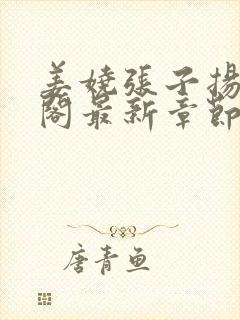 姜嬈張子揚
閣最新章節
唐青鱼